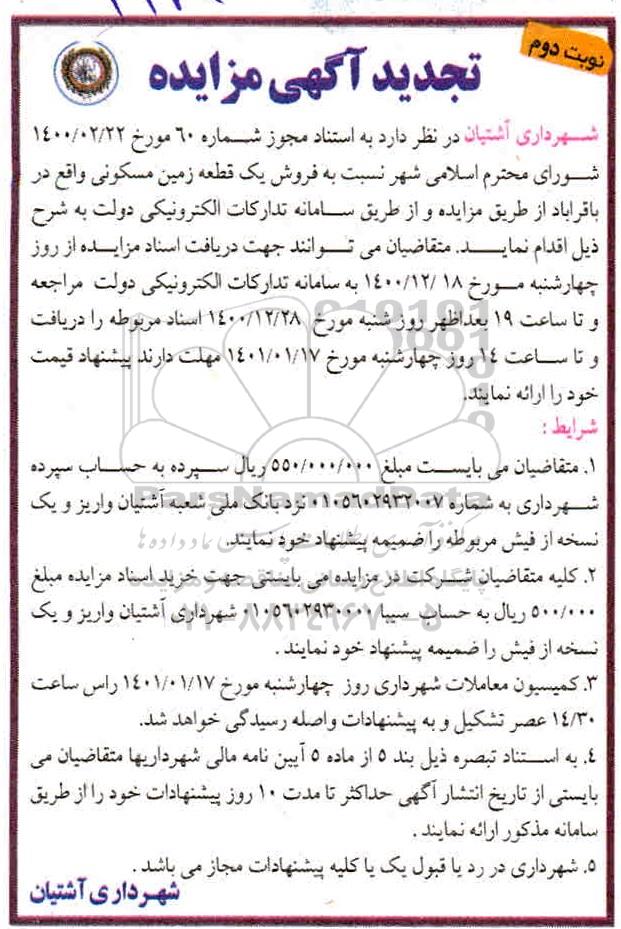 نوبت دوم
تجدید آگهی مزایده
شهرداری آشتیان در نظر دارد به استناد مجوز شماره ۶۰ مورخ ۱۴۰۰/۰۲/۲۲
شورای محترم اسلامی شهر نسبت به فروش یک قطعه زمین مسکونی واقع در
باقراباد از طریق مزایده و از طریق سامانه تدارکات الکترونیکی دولت به شرح
ذیل اقدام نماید. متقاضیان می توانند جهت دریافت اسناد مزایده از روز
چهارشنبه مورخ ۱۸ /۱۴۰۰/۱۲ به سامانه تدارکات الکترونیکی دولت مراجعه
و تا ساعت ۱۹ بعداظهر روز شنبه مورخ ۱۴۰۰/۱۲/۲۸ اسناد مربوطه را دریافت
و تا ساعت ۱۴ روز چهارشنبه مورخ ۱۴۰۱/۰۱/۱۷ مهلت دارند پیشنهاد قیمت
خود را ارائه نمایند.
شرایط :
۱. متقاضیان می بایست مبلغ ۵۵۰/۰۰۰/۰۰۰ ریال سپرده به حساب سپرده
شهرداری به شماره ۰۱۰۵۶۰۲۹۳۲۰۰۷ نزد بانک ملی شعبه آشتیان واریز و یک
نسخه از فیش مربوطه را ضمیمه پیشنهاد خود نمایند.
۲. کلیه متقاضیان شرکت در مزایده می بایستی جهت خرید اسناد مزایده مبلغ
۵۰۰/۰۰۰ ریال به حساب سیبا ۰۱۰۵۶۰۲۹۳۰۰۰۰ شهرداری آشتیان واریز و یک
نسخه از فیش را ضمیمه پیشنهاد خود نمایند .
۳. کمیسیون معاملات شهرداری روز چهارشنبه مورخ ۱۴۰۱/۰۱/۱۷ راس ساعت
۱۴/۳۰ عصر تشکیل و به پیشنهادات واصله رسیدگی خواهد شد.
۴. به استناد تبصره ذیل بند ۵ از ماده ۵ آیین نامه مالی شهرداریها متقاضیان می
بایستی از تاریخ انتشار آگهی حداکثر تا مدت ۱۰ روز پیشنهادات خود را از طریق
سامانه مذکور ارائه نمایند .
۵. شهرداری در رد یا قبول یک یا کلیه پیشنهادات مجاز می باشد .
شهرداری آشتیان
ParsNamadData
پایگاه اطلاع رسانی مناقصه و مزایده
۰۲۱-۸۸۳۴۹۶۷۰-۵